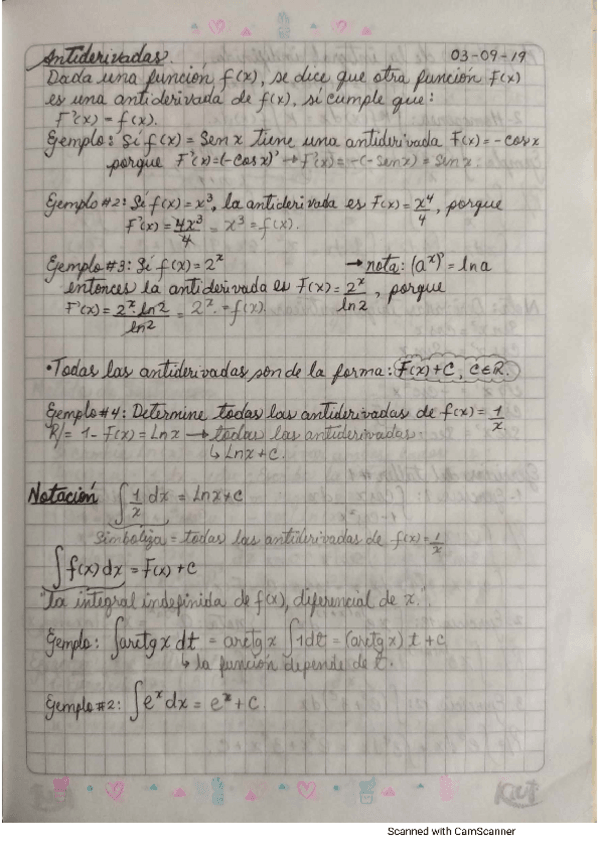 Antiderivadas. 03-09-19
Dada una función f(x), se dice que otra función F(x)
es una antiderivada de f(x), si cumple que:
F'(x) = f(x).
Ejemplo: Si f(x) = Sen x tiene una antiderivada F(x) = -cos x
porque F'(x) = (-cos x)' → F'(x) = -(-sen x) = sin x.
Ejemplo #2: Si f(x) = x³, la antiderivada es F(x) = x⁴/4, porque
F'(x) = 4x³/4 = x³ = f(x).
Ejemplo #3: Si f(x) = 2ˣ → nota: (aˣ)' = ln a
entonces la antiderivada es F(x) = 2ˣ/ln2, porque
F'(x) = 2ˣ·ln2/ln2 = 2ˣ = f(x).
• Todas las antiderivadas son de la forma: F(x) + C, C ∈ R.
Ejemplo #4: Determine todas las antiderivadas de f(x) = 1/x.
R/= 1- F(x) = Ln x → todas las antiderivadas
↳ Ln x + C.
Notación ∫ 1/x dx = Ln x + C
Simboliza = todas las antiderivadas de f(x) = 1/x
∫ f(x) dx = F(x) + C
"la integral indefinida de f(x), diferencial de x."
Ejemplo: ∫ arctg x dt = arctg x ∫ 1 dt = (arctg x) t + C
↳ la función depende de t.
Ejemplo #2: ∫ eˣ dx = eˣ + C.
Scanned with CamScanner